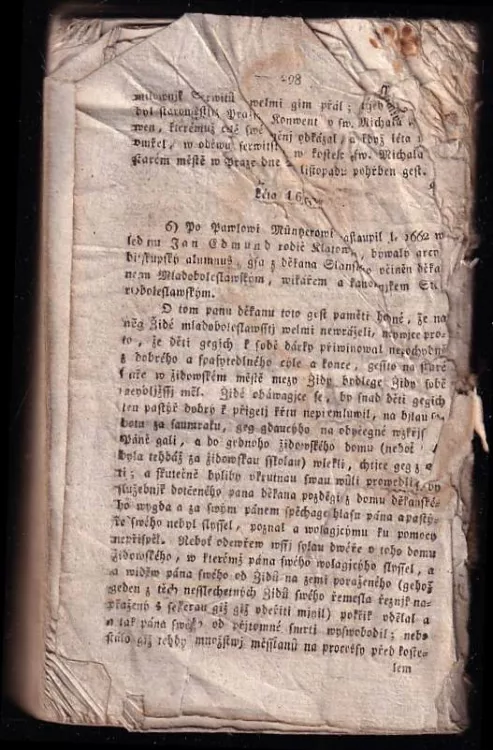 — 298
milownjk Serwitů welmi gim přál; tjej
byl staroměstsk Praze Konwent v sw. Michala
wen, kterémuž celé swé gměnj odkázal, a když léta
vmřel, w oděwu serwitsk w kostele sw. Michala
starém městě w Praze dne listopadu pohřben gest.
Léta 16
6) Po Pawlowi Müntzerowi nastaupil l. 1662 w
lednu Jan Edmund rodič Klatow býwalý arcy
biskupský alumnus, gsa z děkana Slansko včiněn děka
nem Mladoboleslawským, wikářem a kanownjkem Sta
roboleslawským.
O tom panu děkanu toto gest paměti hodné, že na
něg Židé mladoboleslawsstj welmi newražili, neywjce pro
to, že děti gegich k sobě dárky přiwinowal nepochybně
z dobrého a spasytedlného cýle a konce, gessto na staré
faře w židowském městě mezy Židy bydlege Židy sobě
neybližssj měl. Židé obáwagjce se, by snad děti gegich
ten pastýř dobrý k přigetj křtu nepřemluwil, na djlau
botu za saumraku, geg gdaucýho na obyčegné wzkřjs
Páně gali, a do gednoho židowského domu (neboť
byla tehdáž za židowskau sskolau) wlekli, chtjce geg z
ti; a skutečně byliby vkrutnau swau wůli prowedli, by
služebnjk dotčeného pana děkana pozděgi z domu děkanské-
ho wygda a za swým pánem spěchage hlasu pána a pastý-
ře swého nebyl slyssel, poznal a wolagjcýmu ku pomocy
nepřispěl. Neboť odewřew wssj sylau dwéře v toho domu
Židowského, w kterémž pána swého wolagjcýho slyssel, a
a widěw pána swého od Židů na zemi poraženého (gehož
geden z těch nesslechetných Židů swého řemesla řeznjk na-
přažený s sekerau giž giž vdeřiti mjnil) pokřik vdělal a
a tak pána swého od přjtomné smrti wyswobodil; neb
stálo giž tehdy množstwj měsstanů na procesý před koste-
lem